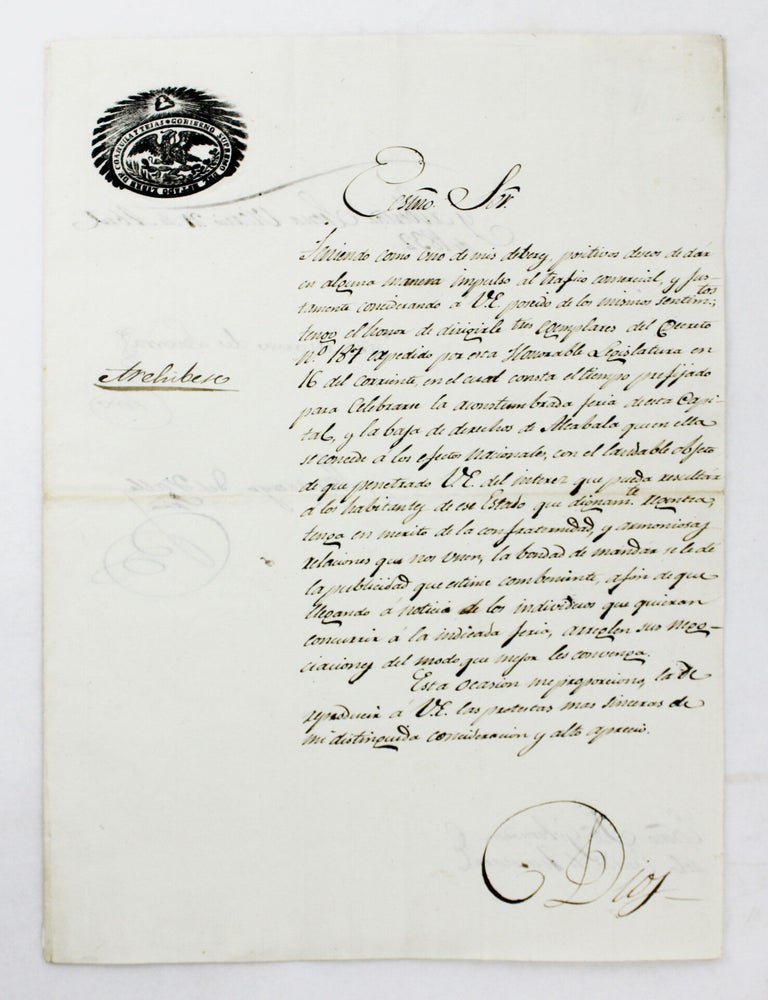 GOBIERNO SUPREMO DEL ESTADO LIBRE DE COAHUILA Y TEJAS
Ecsmo. Sor.
Archibese
Teniendo como uno de mis deberes, positivos deseos de dár
en alguna manera impulso al trafico comercial, y jus-
tamente considerando á V.E. poseido de los mismos sentim.tos
tengo el honor de dirigirle tres egemplares del Decreto
N.o 187 expedido por esta Honorable Legislatura en
16 del corriente, en el cual consta el tiempo prefijado
para Celebrarse la acostumbrada feria de esta Capi-
tal, y la baja de derechos de Alcabala que en ella
se concede á los efectos Nacionales, con el laudable objeto
de que penetrado V.E. del interez que pueda resultár
á los habitantes de ese Estado que dignam.te
tenga en merito de la confraternidad, y armoniosas
relaciones que nos unen, la bondad de mandar se le dé
la publicidad que estime combeniente, a fin de que
llegando á noticia de los individuos que quieran
concurrir á la indicada feria, arreglen sus nego-
ciaciones del modo que mejor les convenga.
Esta ocasion me proporciona, la de
reproducir á V.E. las protestas mas sinceras de
mi distinguida consideracion y alto aprecio.
Dios